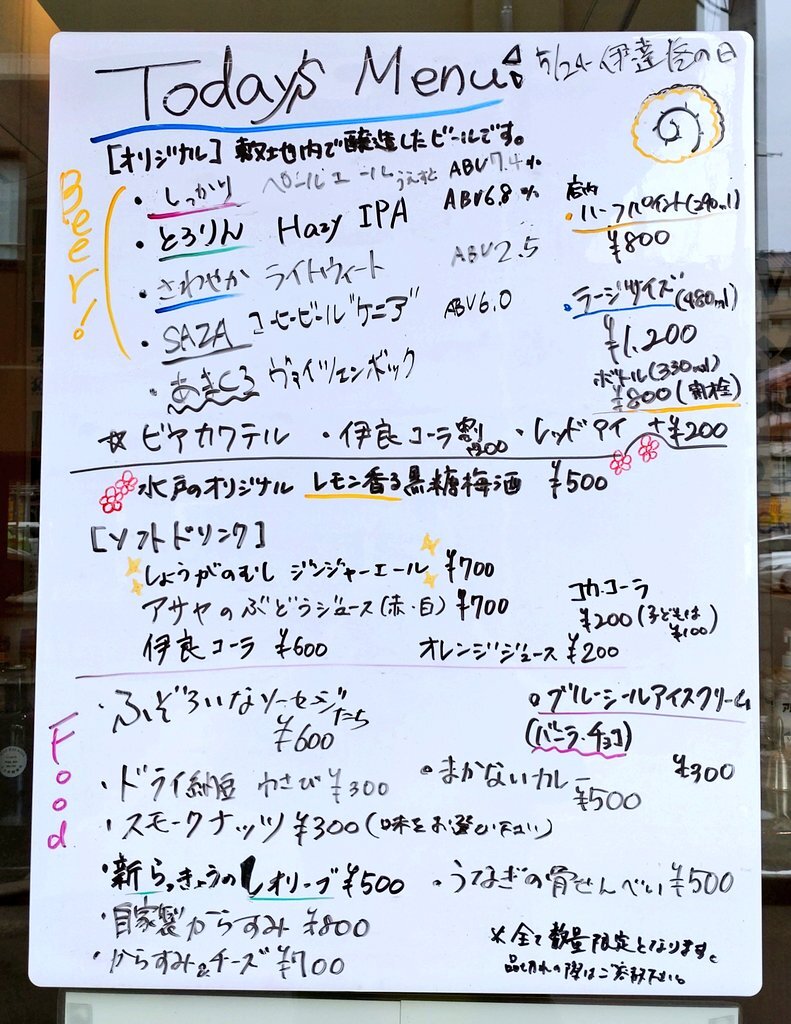 Today's Menu
5/24
の日
[オリジナル] 敷地内で醸造したビールです。
Beer!
・しっかり ペールエール うえすと ABV7.4%
・とろりん Hazy IPA ABV6.8%
・さわやか ライトウィート ABV2.5
・SAZA コーヒービール"ケニア" ABV6.0
・あきくろ ヴァイツェンボック
店内
・ハーフパイント(290ml)
¥800
・ラージサイズ(480ml)
¥1,200
ボトル(330ml)
¥800(開栓)
☆ ビアカクテル ・伊良コーラ割 ・レッドアイ +¥200
水戸のオリジナル レモン香る黒糖梅酒 ¥500
[ソフトドリンク]
しょうがのむし ジンジャーエール ¥700
アサヤのぶどうジュース(赤・白) ¥700
コカ・コーラ
¥200(子どもは
¥100)
伊良コーラ ¥600
オレンジジュース ¥200
Food
・ふぞろいなソーセージたち
¥600
・ブルーシールアイスクリーム
(バニラ・チョコ)
¥300
・ドライ納豆 わさび ¥300
・まかないカレー
¥500
・スモークナッツ ¥300(味をお選び下さい)
・新らっきょうの オリーブ ¥500
・うなぎの骨せんべい ¥500
・自家製からすみ ¥800
・からすみ&チーズ ¥700
※全て数量限定となります。
品切れの際はご容赦下さい。